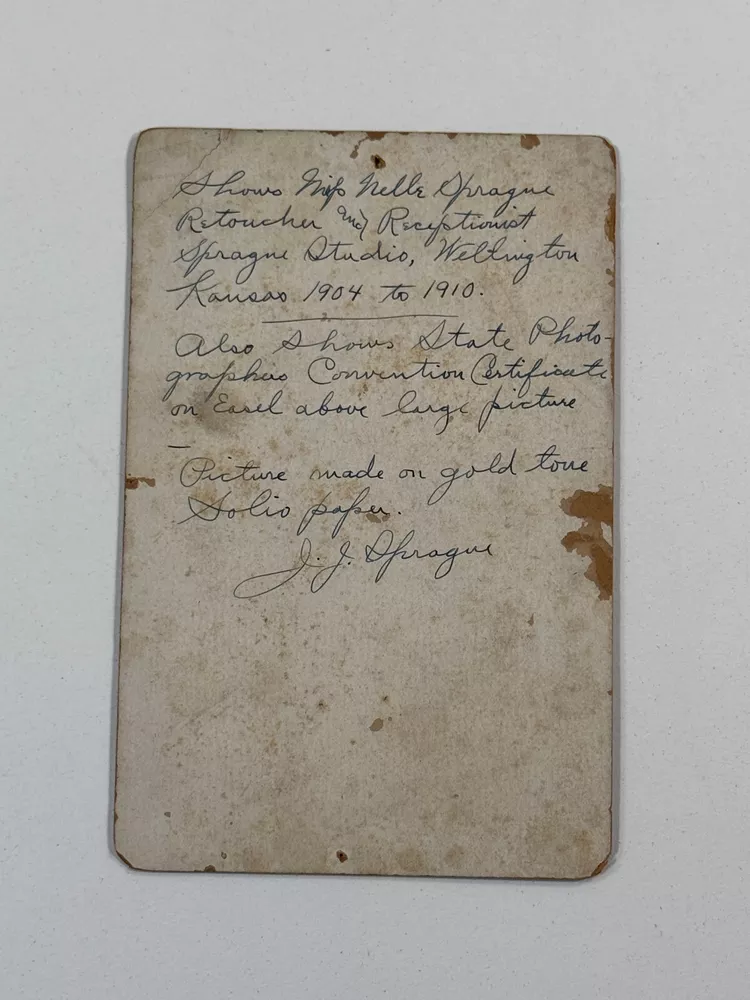 Shows Miss Nelle Sprague
Retoucher and Receptionist
Sprague Studio, Wellington
Kansas 1904 to 1910.
Also Shows State Photo-
graphers Convention Certificate
on Easel above large picture
Picture made on gold tone
Solio paper.
J. J. Sprague